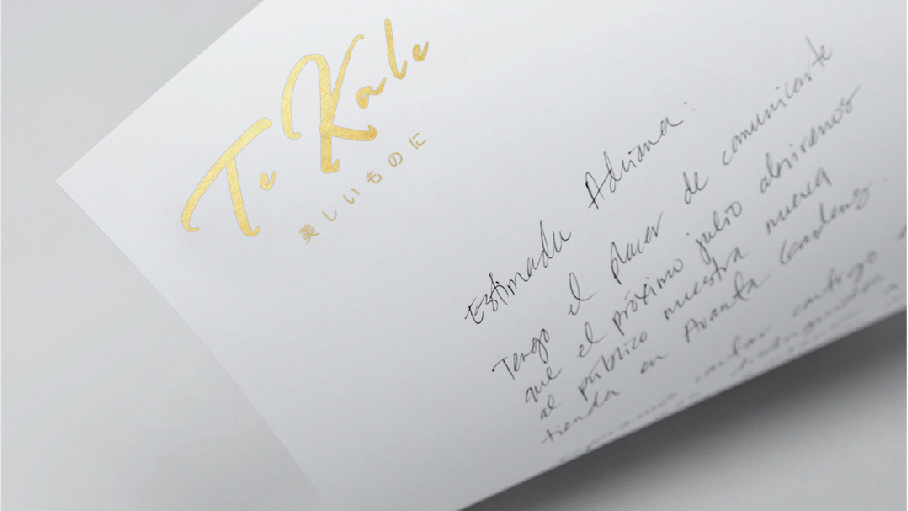 Te Kale
美しいものに
Estimada Adriana:
Tengo el placer de comunicarte
que el próximo julio abriremos
al público nuestra nueva
tienda en Avanta Gardens.
contar contigo